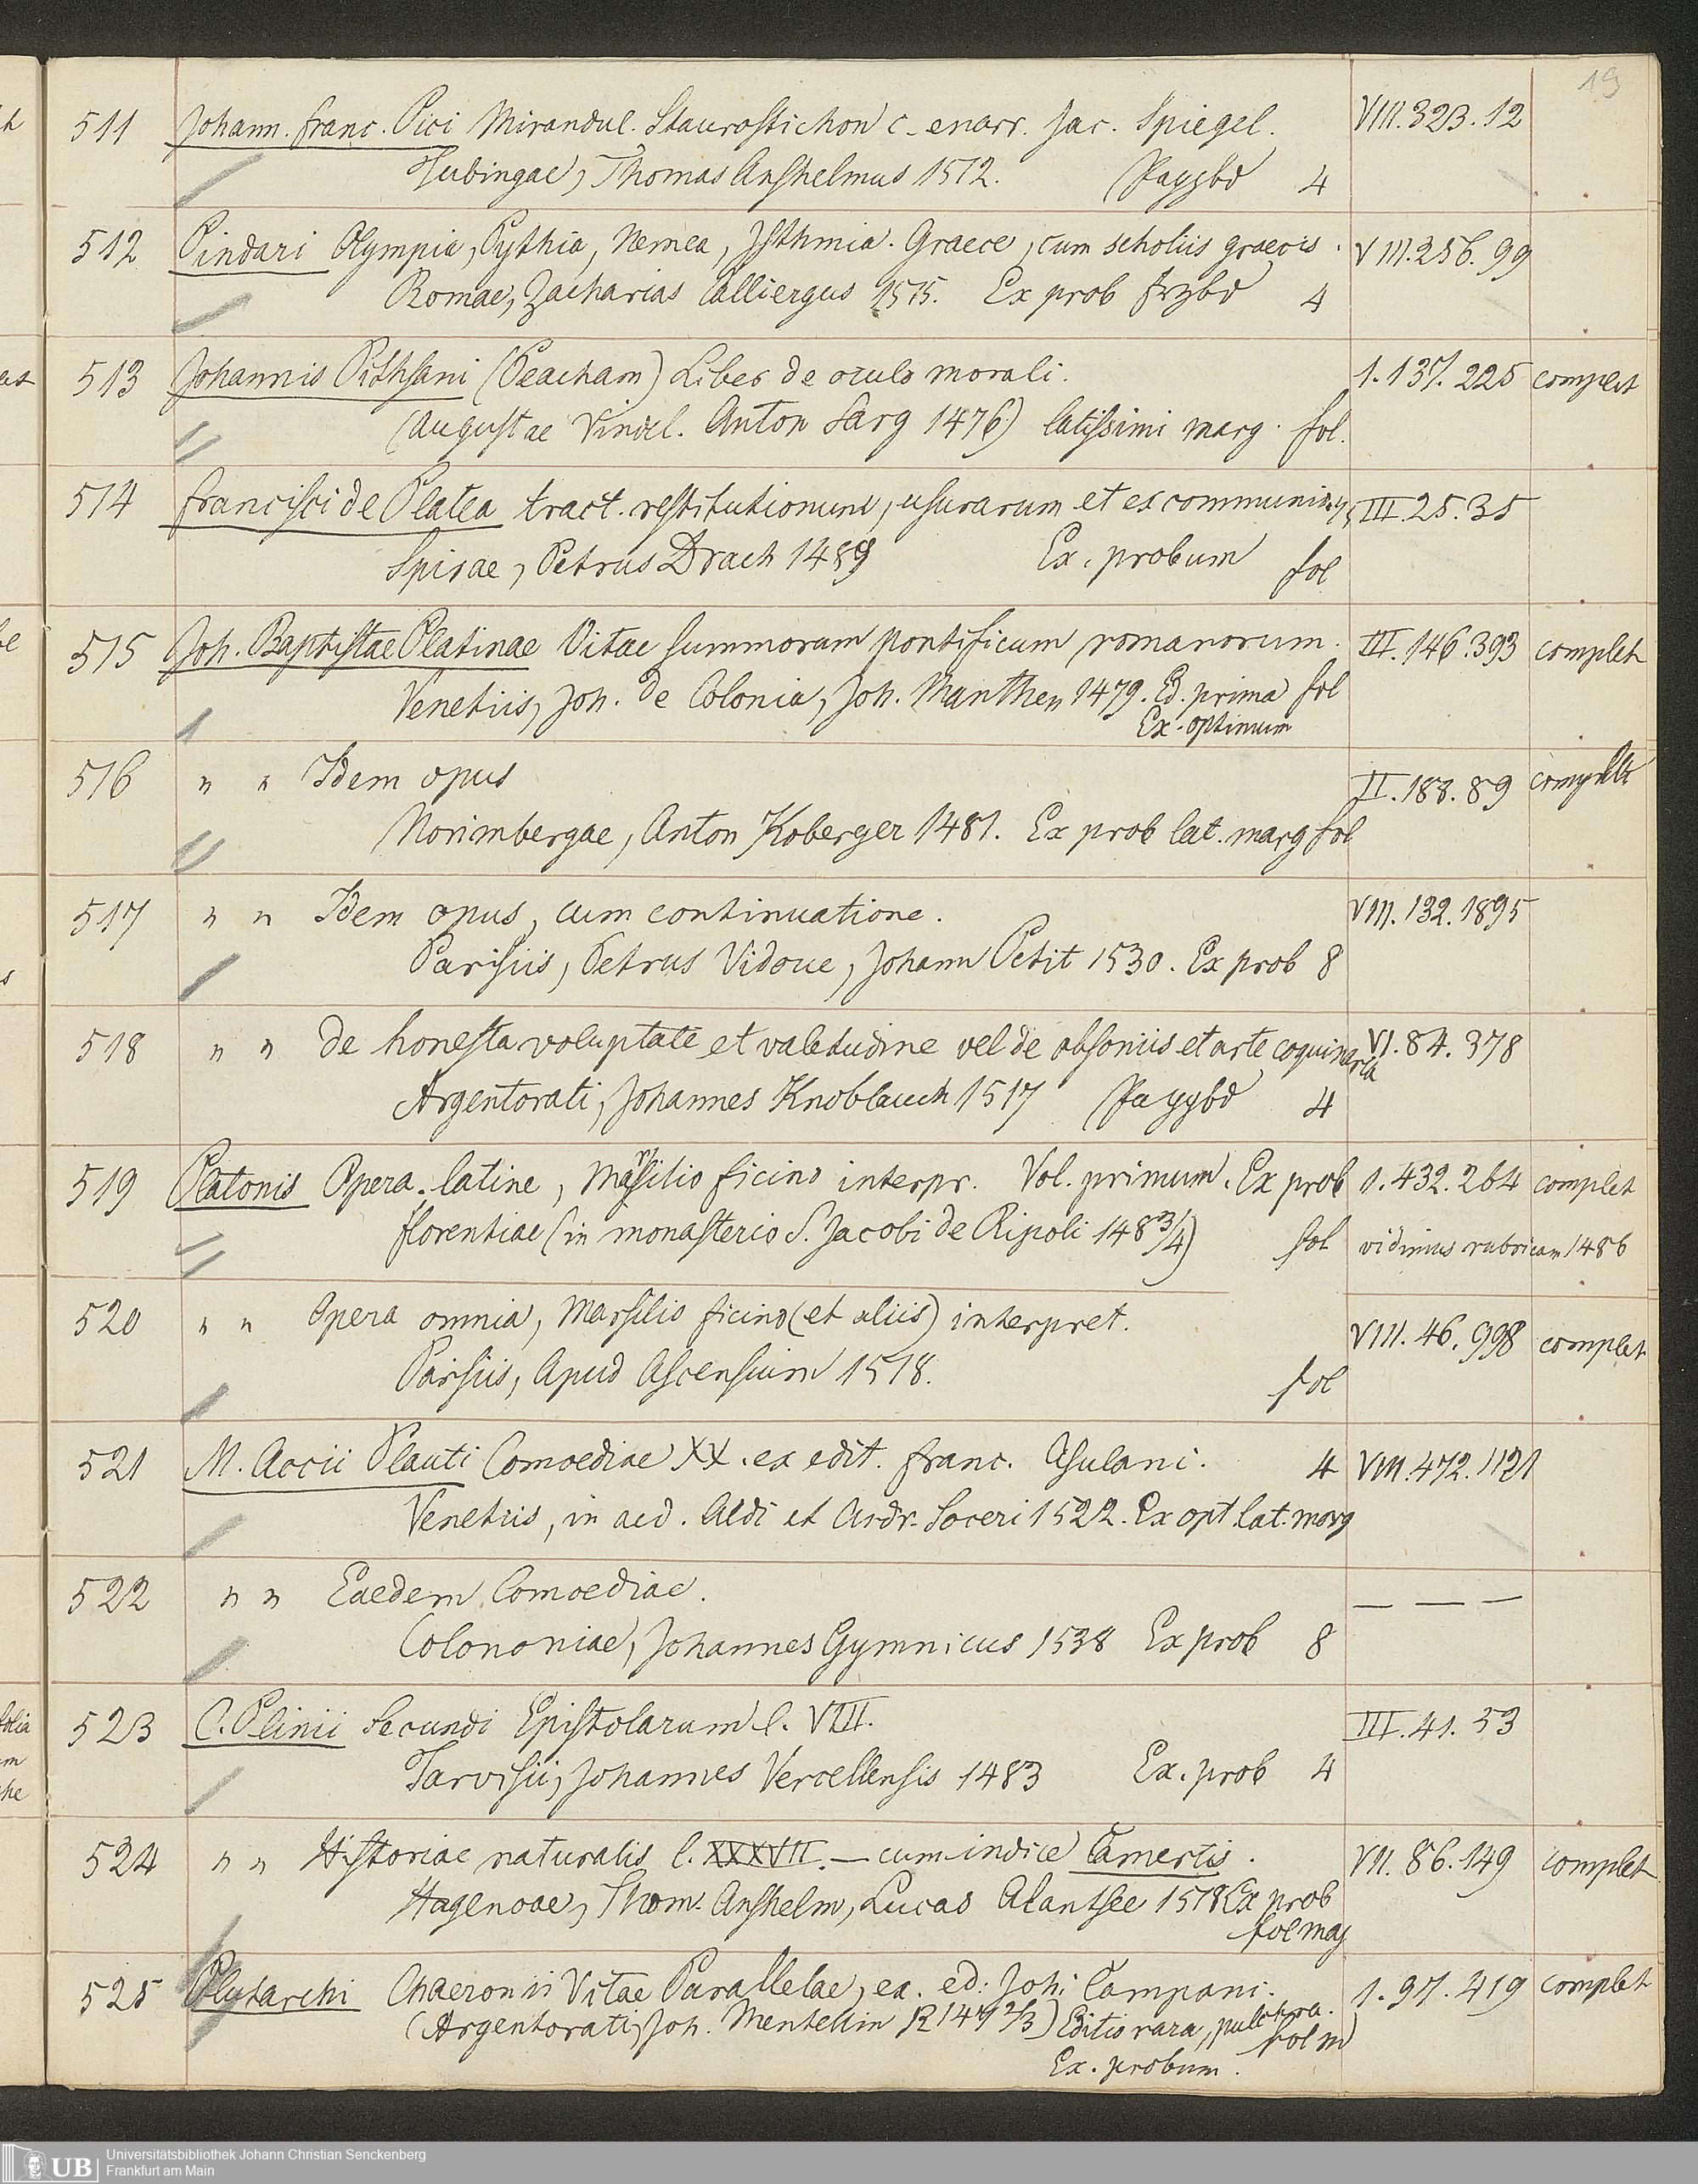 19
511 Johann. Franc. Pici Mirandul. Staurostichon c. enarr. Jac. Spiegel. VIII.323.12
Tubingae, Thomas Anshelmus 1512. Pappbd 4
512 Pindari Olympia, Pythia, Nemea, Isthmia. Graece, cum scholiis graecis. VIII.256.99
Romae, Zacharias Calliergus 1515. Ex prob frzbd 4
513 Johannis Pithsani (Peacham) Liber de oculo morali. 1.137.225 complet
(Augustae Vindel. Anton Sarg 1476) latissimi marg. fol.
514 Francisci de Platea tract. restitutionum, usurarum et excommunic. III.25.35
Spirae, Petrus Drach 1489 Ex. probum fol
515 Joh. Baptistae Platinae Vitae summorum pontificum romanorum. III.146.393 complet
Venetiis, Joh. de Colonia, Joh. Manthen 1479. Ed. prima fol
Ex. optimum
516 " " Idem opus II.188.89 complet
Norimbergae, Anton Koberger 1481. Ex prob lat. marg fol
517 " " Idem opus, cum continuatione. VIII.132.1895
Parisiis, Petrus Vidoue, Johann Petit 1530. Ex prob 8
518 " " de honesta voluptate et valetudine vel de obsoniis et arte coquinaria VI.84.378
Argentorati, Johannes Knoblauch 1517 Pappbd 4
519 Platonis Opera. latine, Marsilio Ficino interpr. Vol. primum. Ex prob 1.432.264 complet
Florentiae (in monasterio S. Jacobi de Ripoli 1483/4) fol vidimus rubricam 1486
520 " " Opera omnia, Marsilio Ficino (et aliis) interpret. VIII.46.998 complet
Parisiis, Apud Ascensium 1518. fol
521 M. Accii Plauti Comoediae XX. ex edit. Franc. Asulani. 4 VIII.472.1121
Venetiis, in aed. Aldi et Andr. Soceri 1522. Ex opt lat. marg
522 " " Eaedem Comoediae. — — —
Colononiae, Johannes Gymnicus 1538 Ex prob 8
523 C. Plinii Secundi Epistolarum l. VIII. III.41.53
Tarvisii, Johannes Vercellensis 1483 Ex. prob 4
524 " " Historiae naturalis l. XXXVII. — cum indice Camertis. VII.86.149 complet
Hagenoae, Thom. Anshelm, Lucas Alantsee 1518 Ex prob
fol maj
525 Plutarchi Chaeronii Vitae Parallelae, ex. ed. Joh. Campani. 1.97.419 complet
(Argentorati, Joh. Mentelin R 1472/3) Editio rara, pulchra.
fol m
Ex. probum.
UB Universitätsbibliothek Johann Christian Senckenberg
Frankfurt am Main